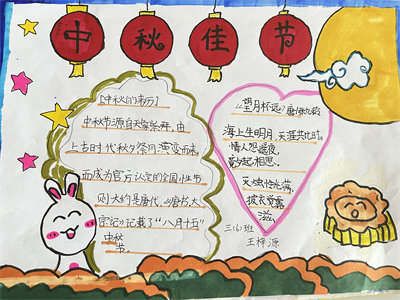 中秋佳节
[中秋的来历]
中秋节源自天象崇拜,由
上古时代秋夕祭月演变而来。
而成为官方认定的全国性节
则大约是唐代。《唐书太
宗记》记载了“八月十五”
中秋
节。
《望月怀远》唐张九龄
海上生明月,天涯共此时。
情人怨遥夜,
竟夕起相思。
灭烛怜光满,
披衣觉露
滋。
三(6)班
王梓源